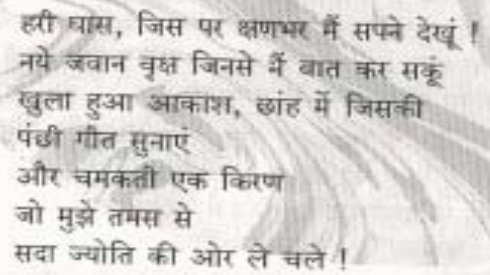 हरी घास, जिस पर क्षणभर मैं सपने देखूं !
नये जवान वृक्ष जिनसे मैं बात कर सकूं
खुला हुआ आकाश, छांह में जिसकी
पंछी गीत सुनाएं
और चमकती एक किरण
जो मुझे तमस से
सदा ज्योति की ओर ले चले !